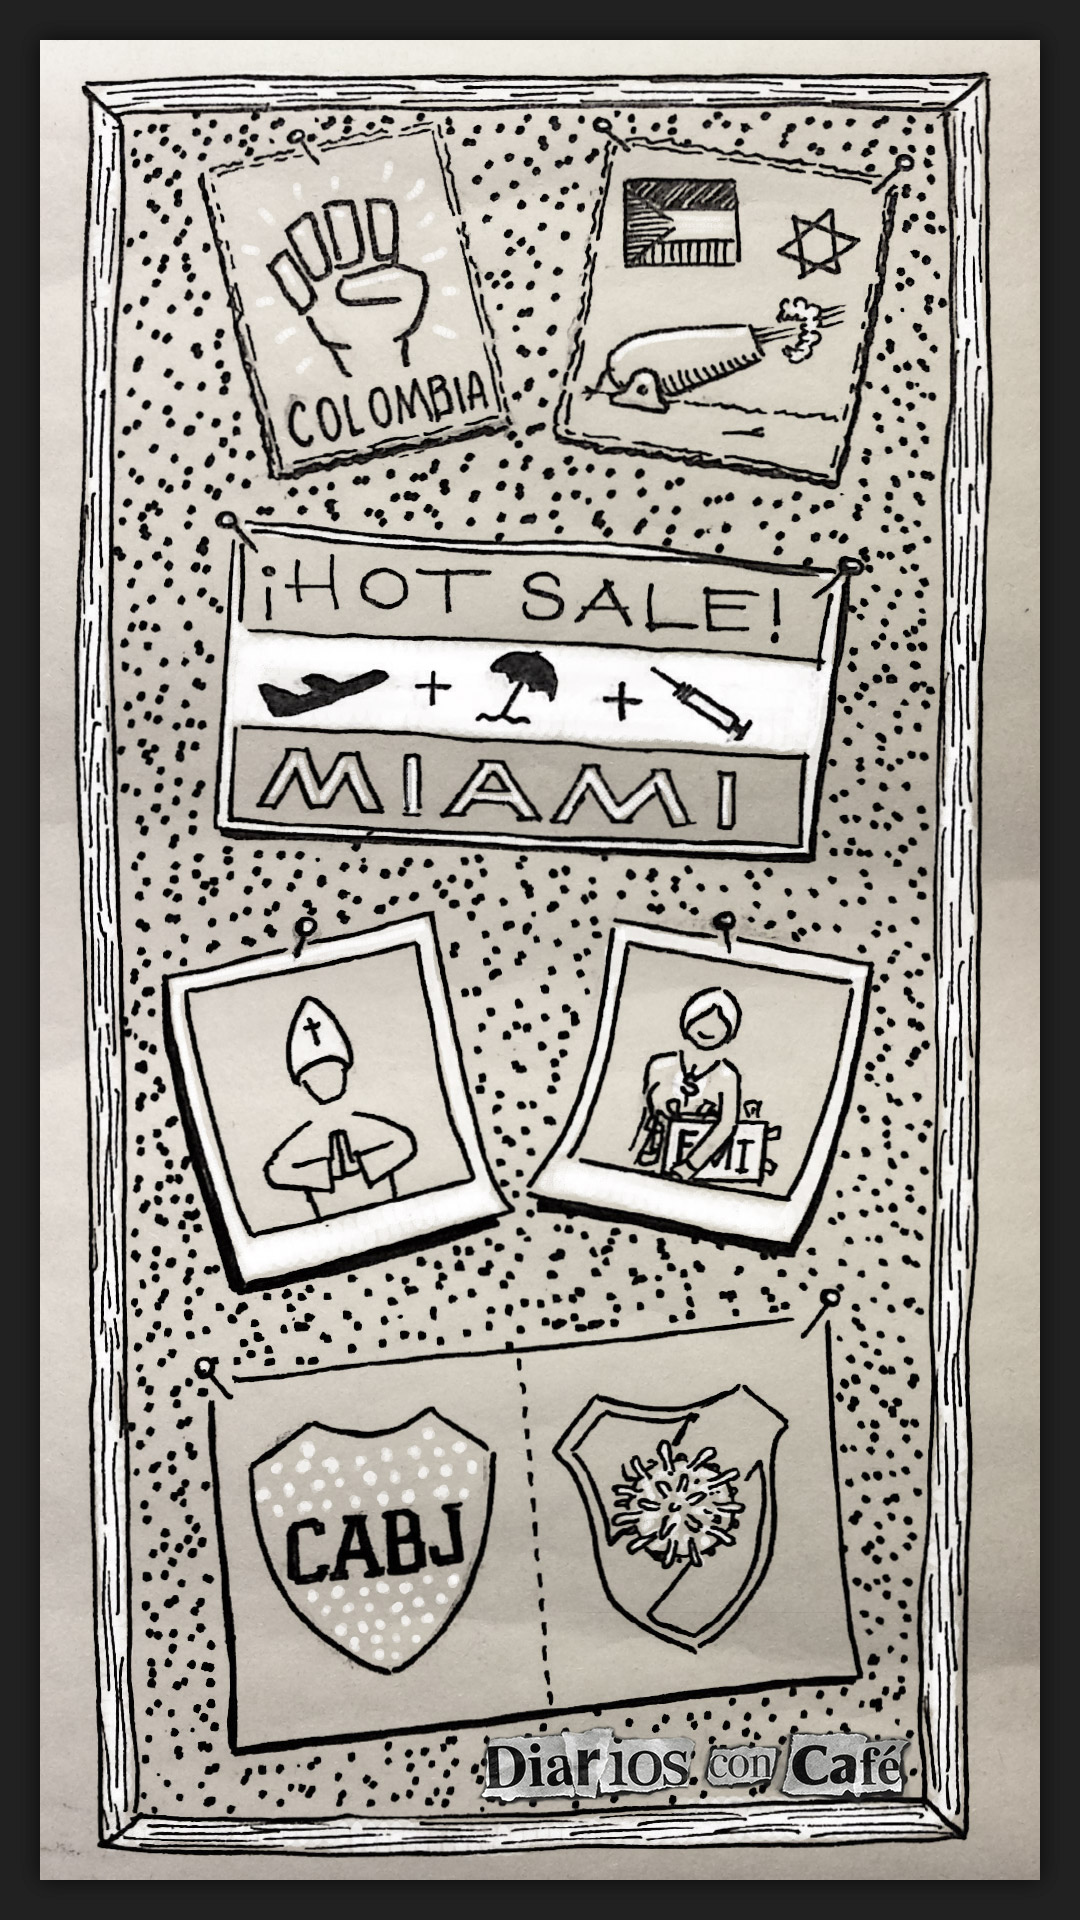 COLOMBIA
¡HOT SALE!
+ +
MIAMI
$
FMI
CABJ
Diarios con Café